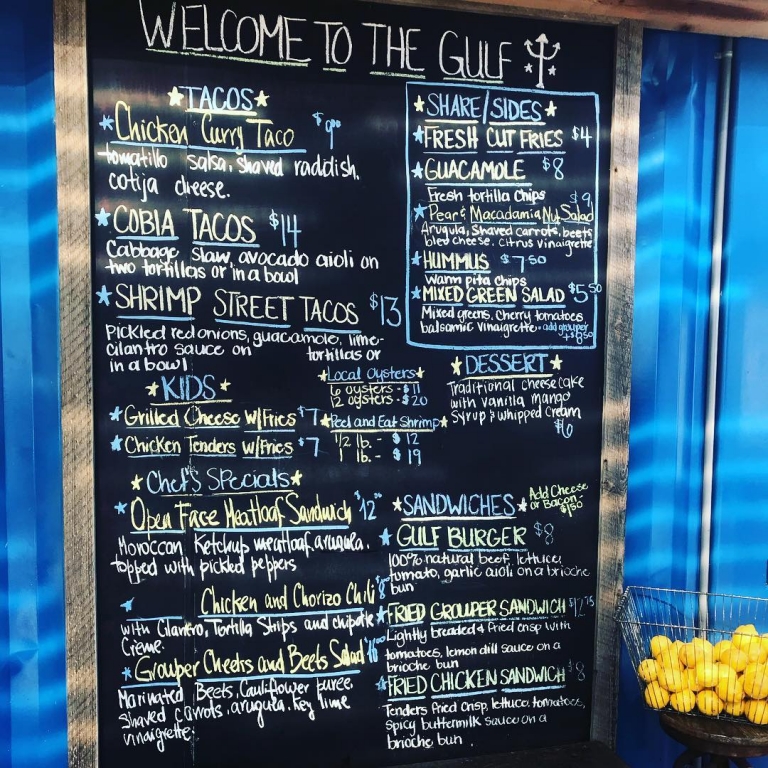 WELCOME TO THE GULF
TACOS
Chicken Curry Taco $9.00
tomatillo salsa, shaved raddish,
cotija cheese.
COBIA TACOS $14
Cabbage slaw, avocado aioli on
two tortillas or in a bowl
SHRIMP STREET TACOS $13
Pickled red onions, guacamole, lime-
cilantro sauce on tortillas or
in a bowl
KIDS
Grilled Cheese W/Fries $7
Chicken Tenders w/Fries $7
Local Oysters
6 oysters - $11
12 oysters - $20
Peel and Eat Shrimp
1/2 lb. - $12
1 lb. - $19
Chef's Specials
Open Face Meatloaf Sandwich $12.00
Moroccan Ketchup meatloaf, arugula,
topped with pickled peppers
Chicken and Chorizo Chili $8
with Cilantro, Tortilla Strips and chipotle
Crème.
Grouper Cheeks and Beets Salad
Marinated Beets, Cauliflower puree,
Shaved carrots, arugula, Key lime
vinaigrette.
SHARE/SIDES
FRESH CUT FRIES $4
GUACAMOLE $8
Fresh tortilla chips
Pear & Macadamia Nut Salad $9
Arugula, Shaved carrots, beets
bleu cheese, citrus vinaigrette
HUMMUS $7.50
warm pita chips
MIXED GREEN SALAD $5.50
Mixed greens, Cherry tomatoes,
balsamic vinaigrette · add grouper
DESSERT
Traditional cheesecake
with vanilla mango
Syrup & whipped cream
$6
SANDWICHES
Add Cheese
or Bacon
$1.50
GULF BURGER $8
100% natural beef, lettuce,
tomato, garlic aioli on a brioche
bun
FRIED GROUPER SANDWICH $12.75
Lightly breaded & fried crisp with
tomatoes, lemon dill sauce on a
brioche bun
FRIED CHICKEN SANDWICH $8
Tenders fried crisp, lettuce, tomatoes,
spicy buttermilk sauce on a
brioche bun.